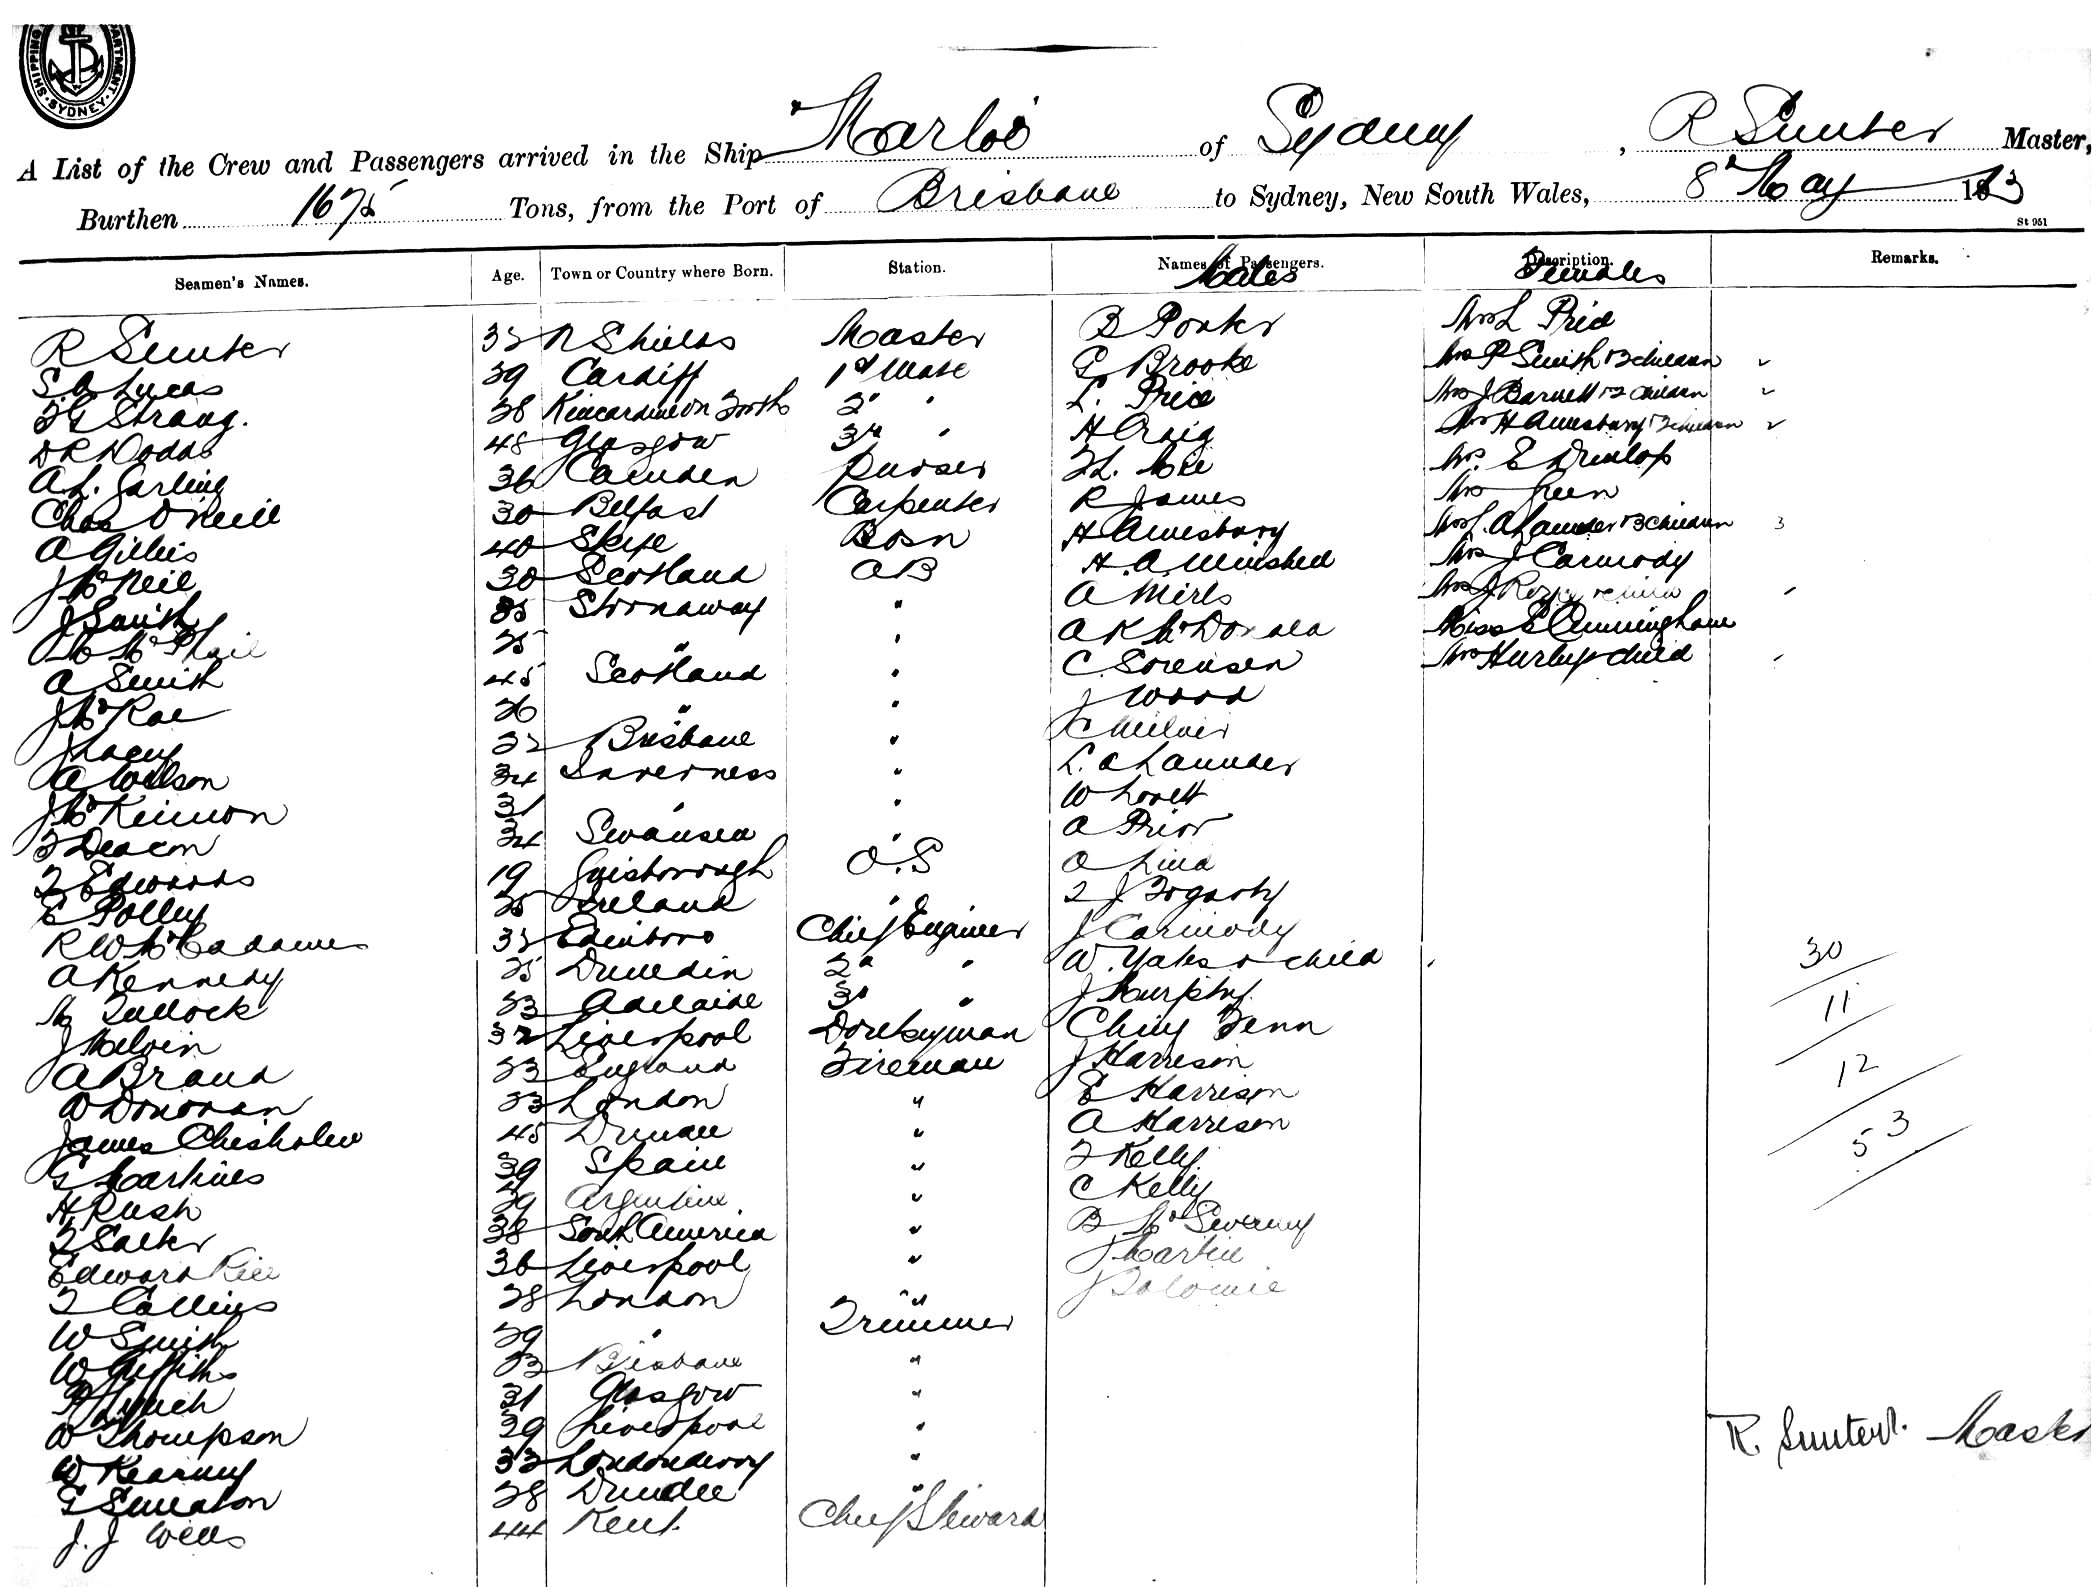 SHIPPING DEPARTMENT · SYDNEY ·
A List of the Crew and Passengers arrived in the Ship Marloo of Sydney, R Sunter Master,
Burthen 1675 Tons, from the Port of Brisbane to Sydney, New South Wales, 8 May 1913
St 951
Seamen's Names. Age. Town or Country where Born. Station. Names of Passengers. Description. Remarks.
Males Females
R Sunter 35 N Shields Master B Porter Mrs L Price
S A Lucas 39 Cardiff 1st Mate G Brooke Mrs P Smith + 3 children
T G Strang. 28 Kincardine on Forth 2d " L. Price Mrs J Barnett + 2 children
D R Dodds 48 Glasgow 3rd " H Craig Mrs H Amesbury + 2 children
A. L. Garling 36 Camden Purser Mrs. E Dunlop
Chas O'Neill 30 Belfast Carpenter R James Mrs Green
A Gillies 40 Skye Bosn H Amesbury Mrs L. A Launder + 3 children 3
J McNeil 30 Scotland AB H. A. Minshed Mrs J Carmody
J Smith 35 Stornaway " A Mirls Mrs J
M McPhail 25 " " A K McDonald Miss E Cunninghame
A Smith 45 Scotland " C. Sorensen Mrs Hurley + child
J McRae 26 " " J Wood
J Lacey 32 Brisbane " C Milner
A Wilson 34 Inverness " L. A Launder
J McKinnon 31 " " W Lovett
T Deacon 34 Swansea " A Prior
T Edwards 19 Guisborough O.S A Lind
E Polley 25 Ireland " T J Fogarty
R W McCadames 35 Edinboro Chief Engineer J Carmody
A Kennedy 25 Dunedin 2d " W. Yates + child
M Tullock 33 Adelaide 3d " J Murphy.
J Melvin 32 Liverpool Donkeyman Ching Fenn
A Brand 33 England Fireman J Harrison
W Donovan 33 London " E Harrison
James Chisholm 45 Dundee " A Harrison
G Martines 39 Spain " T Kelly
H Rush 29 Argentine " C Kelly
T Salter 38 South America " B McSweeney
Edward Rice 36 Liverpool " J Martin
T Collins 28 London "
W Smith 29 " Trimmer
W Griffiths 23 Brisbane "
P Lynch 31 Glasgow "
W Thompson 29 Liverpool "
W Kearney 33 Londonderry "
G Smeaton 28 Dundee "
J. J Wells 44 Kent. Chief Steward
30
11
12
53
R. Sunter. Master